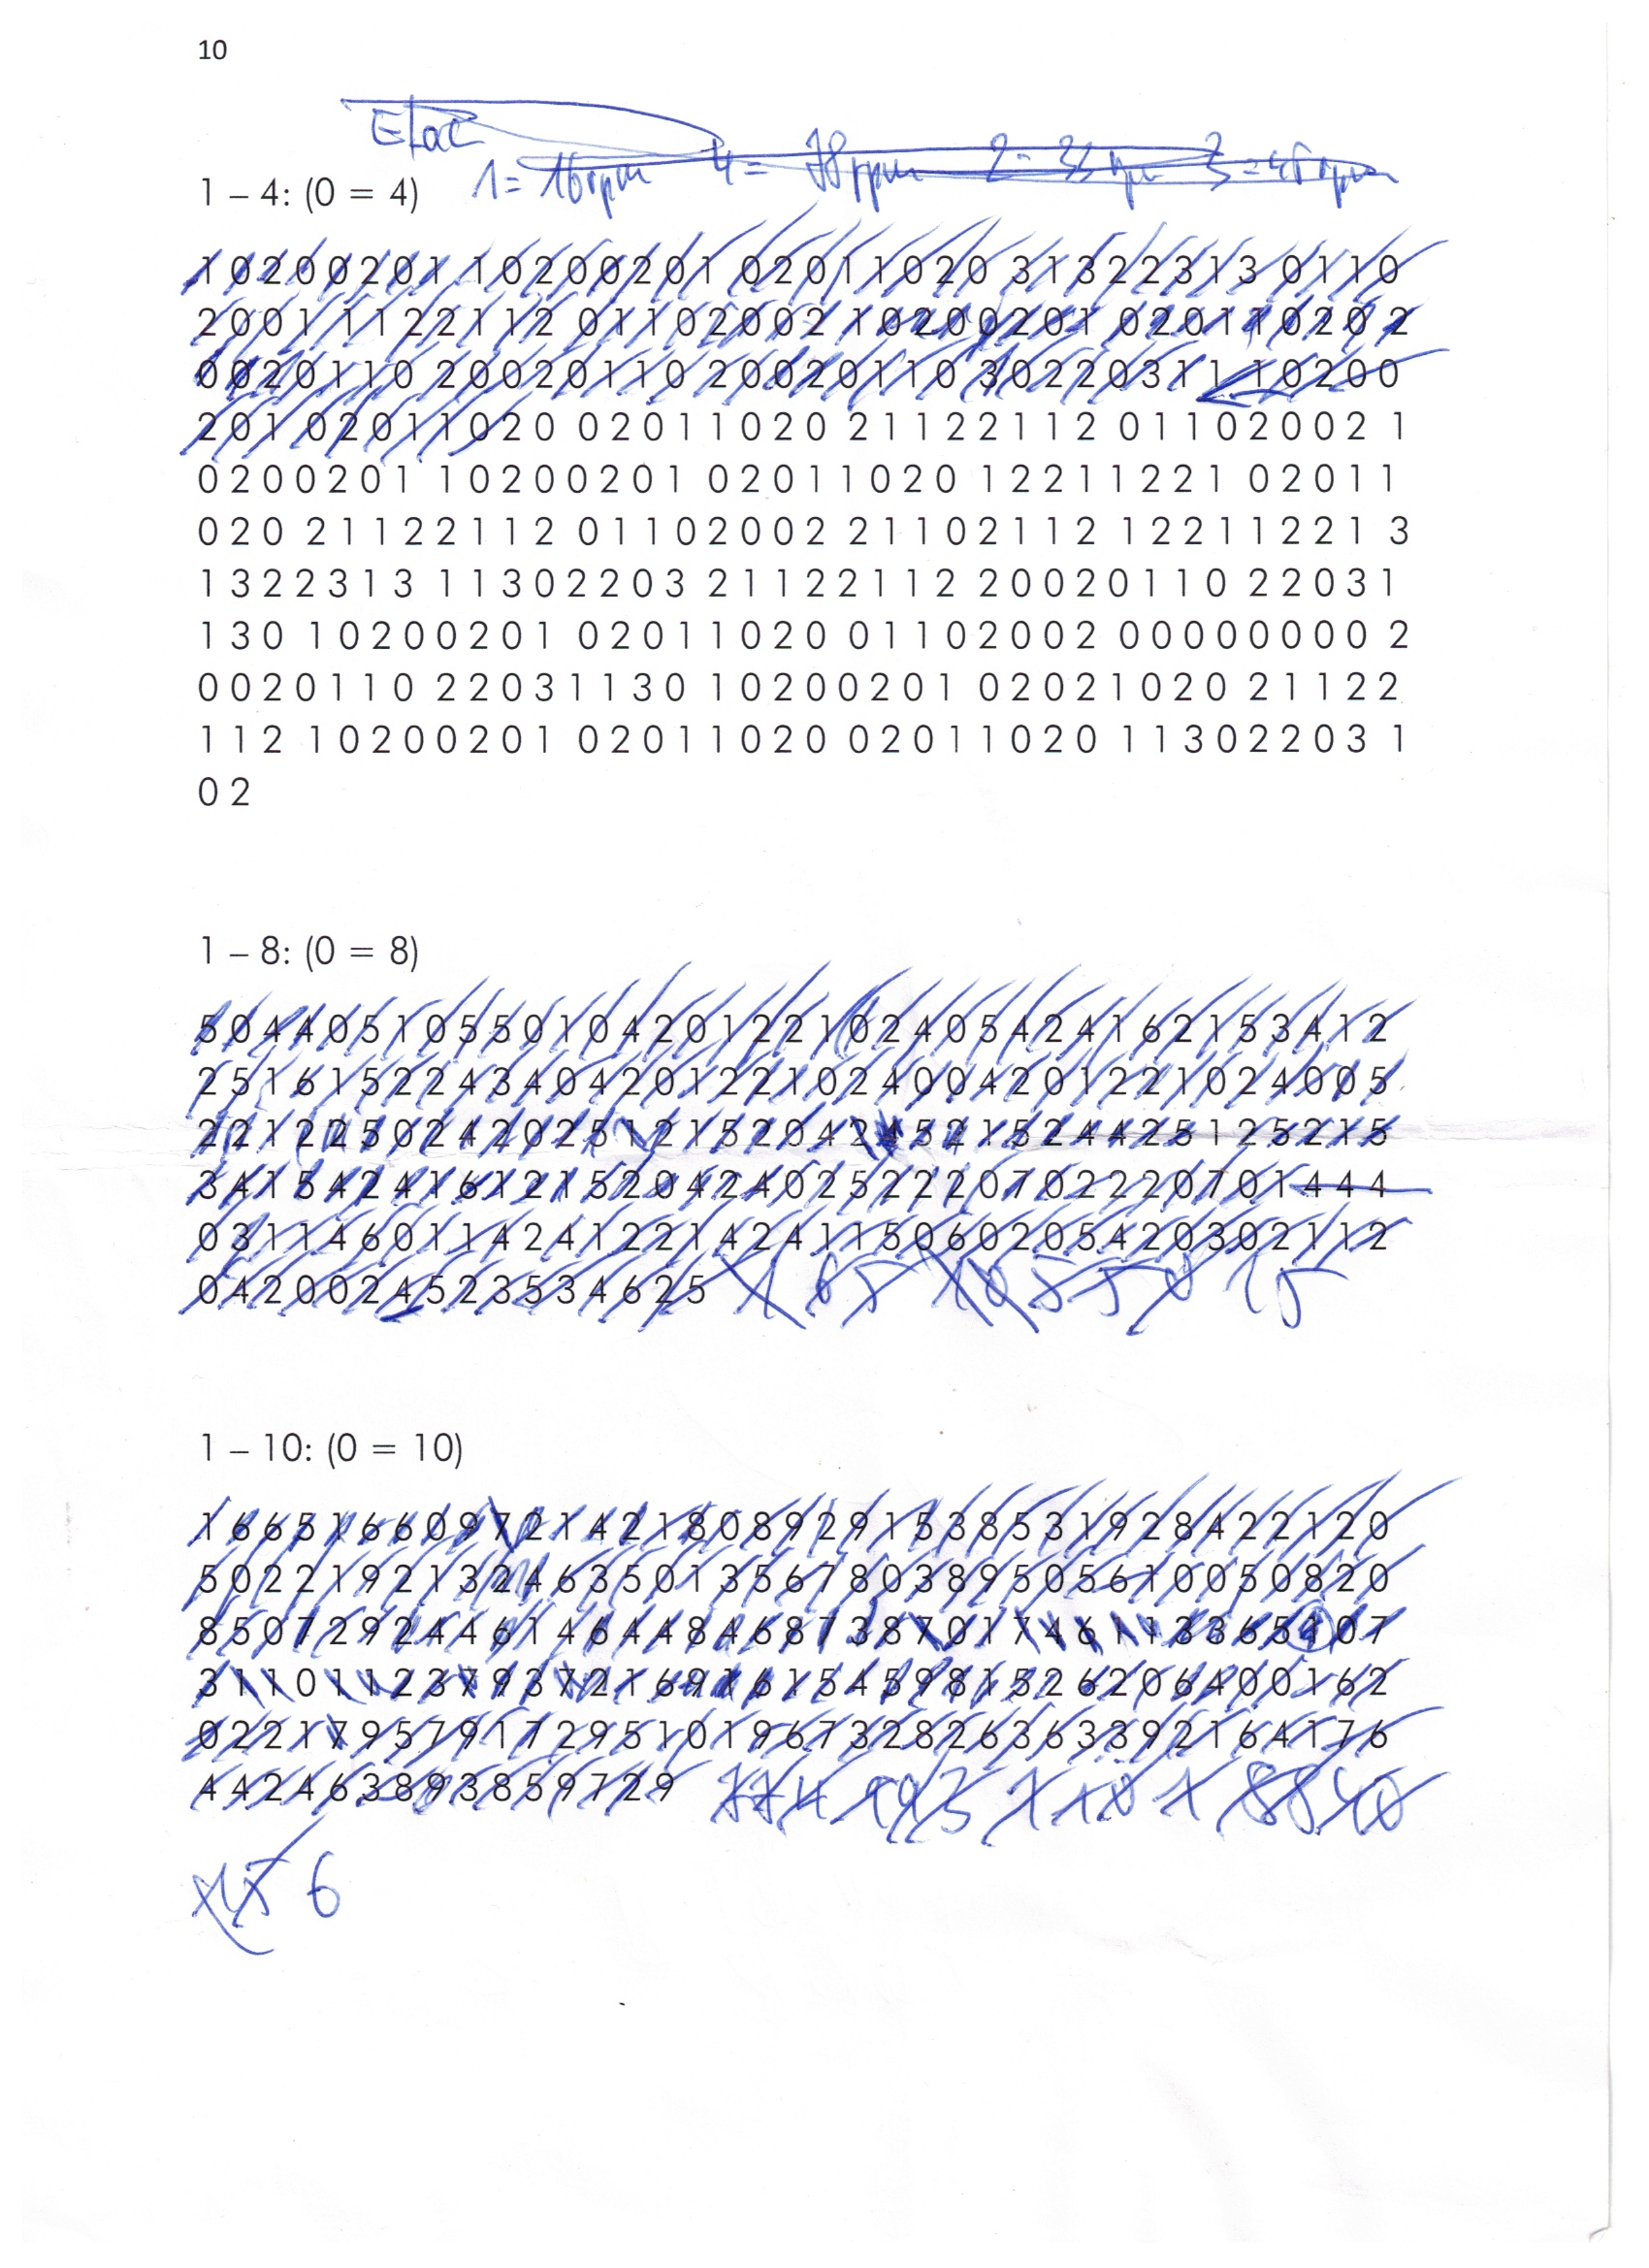 10
Elac
1 = 16 rpm 4 = 78 rpm 2 = 33 rpm 3 = 45 rpm
1 – 4: (0 = 4)
1 0 2 0 0 2 0 1 1 0 2 0 0 2 0 1 0 2 0 1 1 0 2 0 3 1 3 2 2 3 1 3 0 1 1 0
2 0 0 1 1 1 2 2 1 1 2 0 1 1 0 2 0 0 2 1 0 2 0 0 2 0 1 0 2 0 1 1 0 2 0 2
0 0 2 0 1 1 0 2 0 0 2 0 1 1 0 2 0 0 2 0 1 1 0 3 0 2 2 0 3 1 1 1 0 2 0 0
2 0 1 0 2 0 1 1 0 2 0 0 2 0 1 1 0 2 0 2 1 1 2 2 1 1 2 0 1 1 0 2 0 0 2 1
0 2 0 0 2 0 1 1 0 2 0 0 2 0 1 0 2 0 1 1 0 2 0 1 2 2 1 1 2 2 1 0 2 0 1 1
0 2 0 2 1 1 2 2 1 1 2 0 1 1 0 2 0 0 2 2 1 1 0 2 1 1 2 1 2 2 1 1 2 2 1 3
1 3 2 2 3 1 3 1 1 3 0 2 2 0 3 2 1 1 2 2 1 1 2 2 0 0 2 0 1 1 0 2 2 0 3 1
1 3 0 1 0 2 0 0 2 0 1 0 2 0 1 1 0 2 0 0 1 1 0 2 0 0 2 0 0 0 0 0 0 0 0 2
0 0 2 0 1 1 0 2 2 0 3 1 1 3 0 1 0 2 0 0 2 0 1 0 2 0 2 1 0 2 0 2 1 1 2 2
1 1 2 1 0 2 0 0 2 0 1 0 2 0 1 1 0 2 0 0 2 0 1 1 0 2 0 1 1 3 0 2 2 0 3 1
0 2
1 – 8: (0 = 8)
5 0 4 4 0 5 1 0 5 5 0 1 0 4 2 0 1 2 2 1 0 2 4 0 5 4 2 4 1 6 2 1 5 3 4 1 2
2 5 1 6 1 5 2 2 4 3 4 0 4 2 0 1 2 2 1 0 2 4 0 0 4 2 0 1 2 2 1 0 2 4 0 0 5
2 2 1 2 2 5 0 2 4 2 0 2 5 1 2 1 5 2 0 4 2 4 5 2 1 5 2 4 4 2 5 1 2 5 2 1 5
3 4 1 5 4 2 4 1 6 1 2 1 5 2 0 4 2 4 0 2 5 2 2 2 0 7 0 2 2 2 0 7 0 1 4 4 4
0 3 1 1 4 6 0 1 1 4 2 4 1 2 2 1 4 2 4 1 1 5 0 6 0 2 0 5 4 2 0 3 0 2 1 1 2
0 4 2 0 0 2 4 5 2 3 5 3 4 6 2 5
1 – 10: (0 = 10)
1 6 6 5 1 6 6 0 9 7 2 1 4 2 1 8 0 8 9 2 9 1 5 3 8 5 3 1 9 2 8 4 2 2 1 2 0
5 0 2 2 1 9 2 1 3 2 4 6 3 5 0 1 3 5 6 7 8 0 3 8 9 5 0 5 6 1 0 0 5 0 8 2 0
8 5 0 7 2 9 2 4 4 6 1 4 6 4 4 8 4 6 8 7 3 8 7 0 1 7 4 6 1 1 3 3 6 5 4 0 7
3 1 1 0 1 1 2 3 7 9 3 7 2 1 6 9 1 6 1 5 4 5 9 8 1 5 2 6 2 0 6 4 0 0 1 6 2
0 2 2 1 7 9 5 7 9 1 7 2 9 5 1 0 1 9 6 7 3 2 8 2 6 3 6 3 3 9 2 1 6 4 1 7 6
4 4 2 4 6 3 8 9 3 8 5 9 7 2 9
6